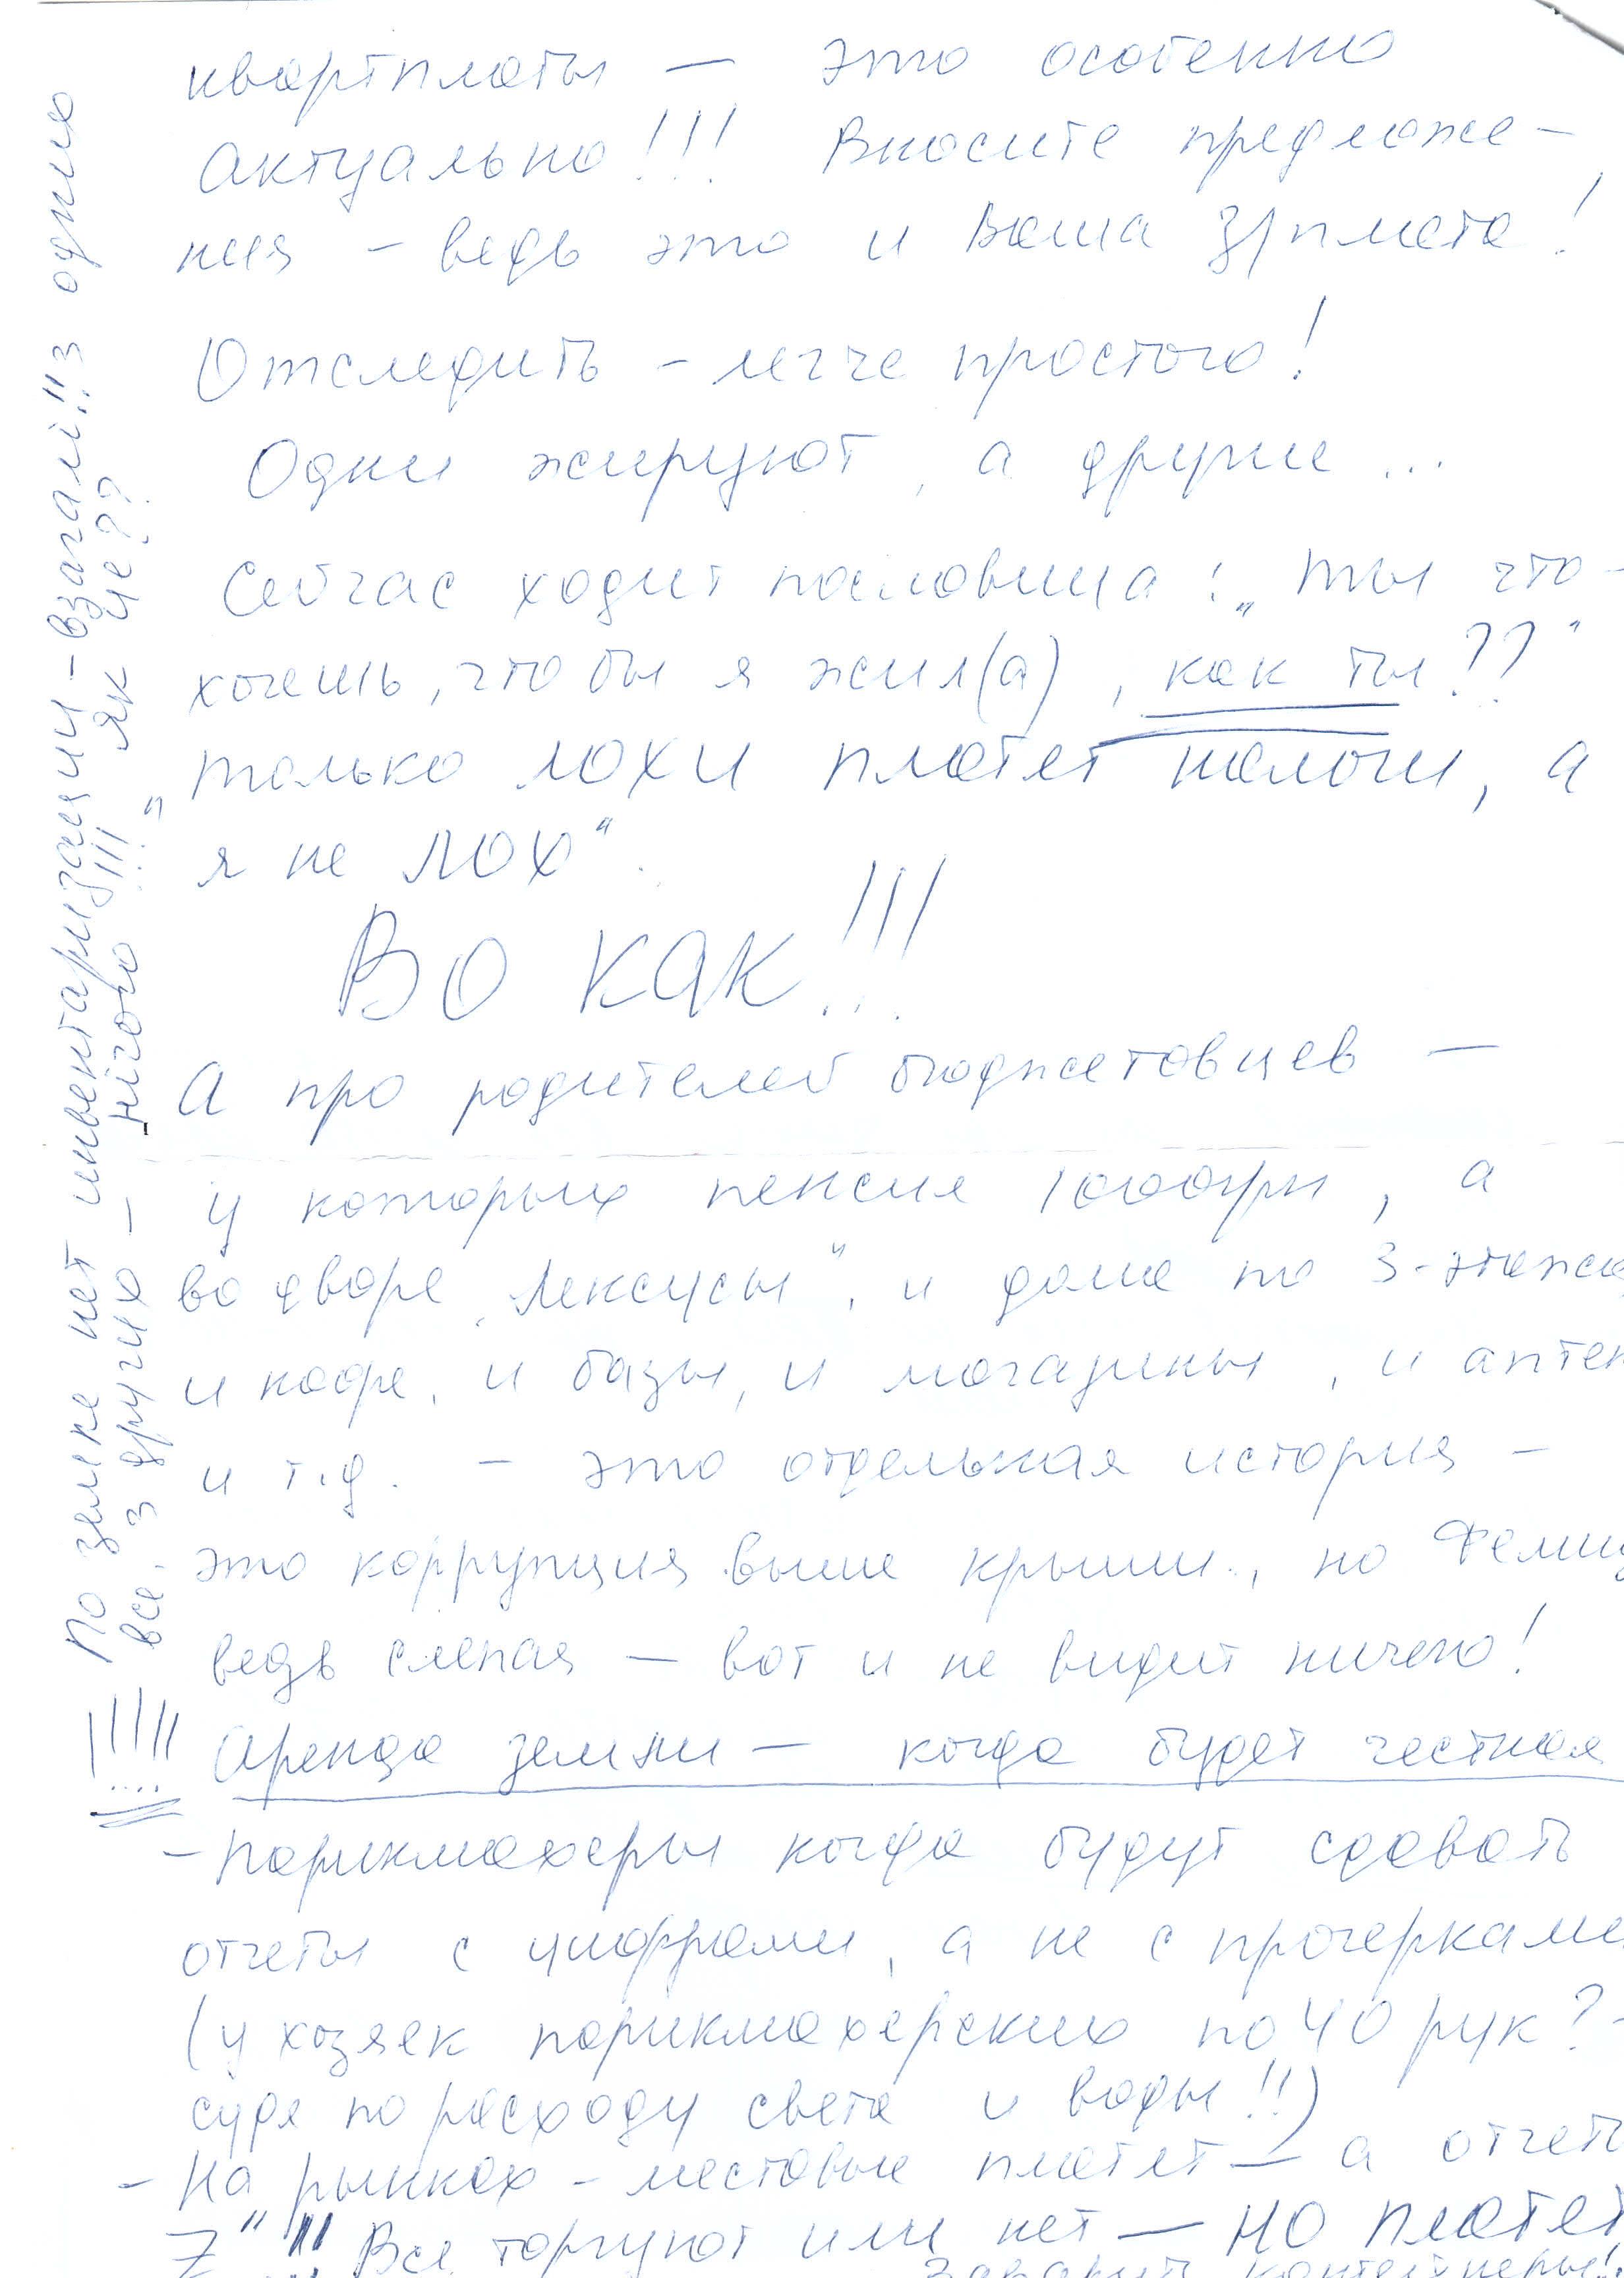 квартплаты — это особенно
актуально!!! Вносите предложе-
ния - ведь это и Ваша з/плата!
Отследить - легче простого!
Одни жируют, а другие ...
Сейчас ходит пословица: „ты что-
хочешь, что бы я жил(а), как ты??"
„только лохи платят налоги, а
я не лох".
Во как!!!
А про родителей бюджетовцев —
у которых пенсия 1000грн, а
во дворе „Лексусы", и дома по 3-этажа
и кафе, и базы, и магазины, и аптек
и т.д. - это отдельная история -
это коррупция выше крыши, но Фемид
ведь слепая — вот и не видит ничего!
Аренда земли — когда будет честная
- Парикмахеры когда будут сдавать
отчеты с цифрами, а не с прочерками
(у хозяек парикмахерских по 40 рук? -
судя по расходу света и воды!!)
- На рынках - местовые платят — а отчеты
Z"!!! Все торгуют или нет — но платят
контейнеры!
!!!!! По земле нет инвентаризации - взагалі!! з одних
все, з других - нічого!!! як це??